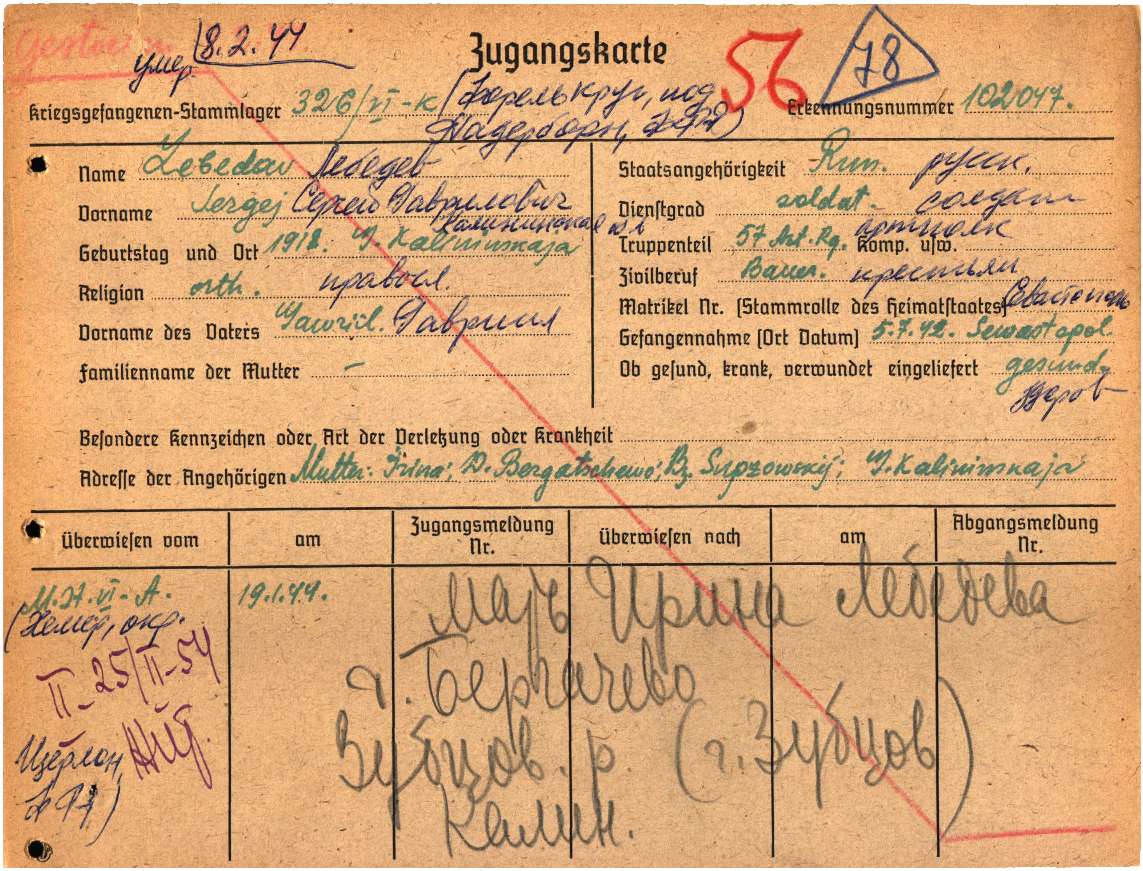 Gestorben
умер 8.2.44
Zugangskarte 56 78
Kriegsgefangenen-Stammlager 326/VI-K (Форелькруг, под Erkennungsnummer 102047.
Падерборн, ФРГ)
Name Lebedav Лебедев
Vorname Sergej Сергей Гаврилович
Калининская
Geburtstag und Ort 1918. J. Kalininskaja
Religion orth. правосл.
Vorname des Vaters Gawriil. Гавриил
Familienname der Mutter –
Staatsangehörigkeit Russ. русск.
Dienstgrad soldat- солдат
артполк
Truppenteil 57 Art. Rg. Komp. usw.
Zivilberuf Bauer. крестьян
Matrikel Nr. (Stammrolle des Heimatstaates) Севастополь
Gefangennahme (Ort Datum) 5.7.42. Sewastopol
Ob gesund, krank, verwundet eingeliefert gesund-
здоров
Besondere Kennzeichen oder Art der Verletzung oder Krankheit
Adresse der Angehörigen Mutter: Irina; D. Bergatschewo; Bz. Supzowskij; J. Kalininskaja
Überwiesen vom am Zugangsmeldung Nr. Überwiesen nach am Abgangsmeldung Nr.
M.St. VI-A. 19.1.44.
(Хемер, окр.
Изерлон,
ФРГ)
II-25/II-54
Мать Ирина Лебедева
д. Бергачево
Зубцов. р. (г. Зубцов)
Калин.